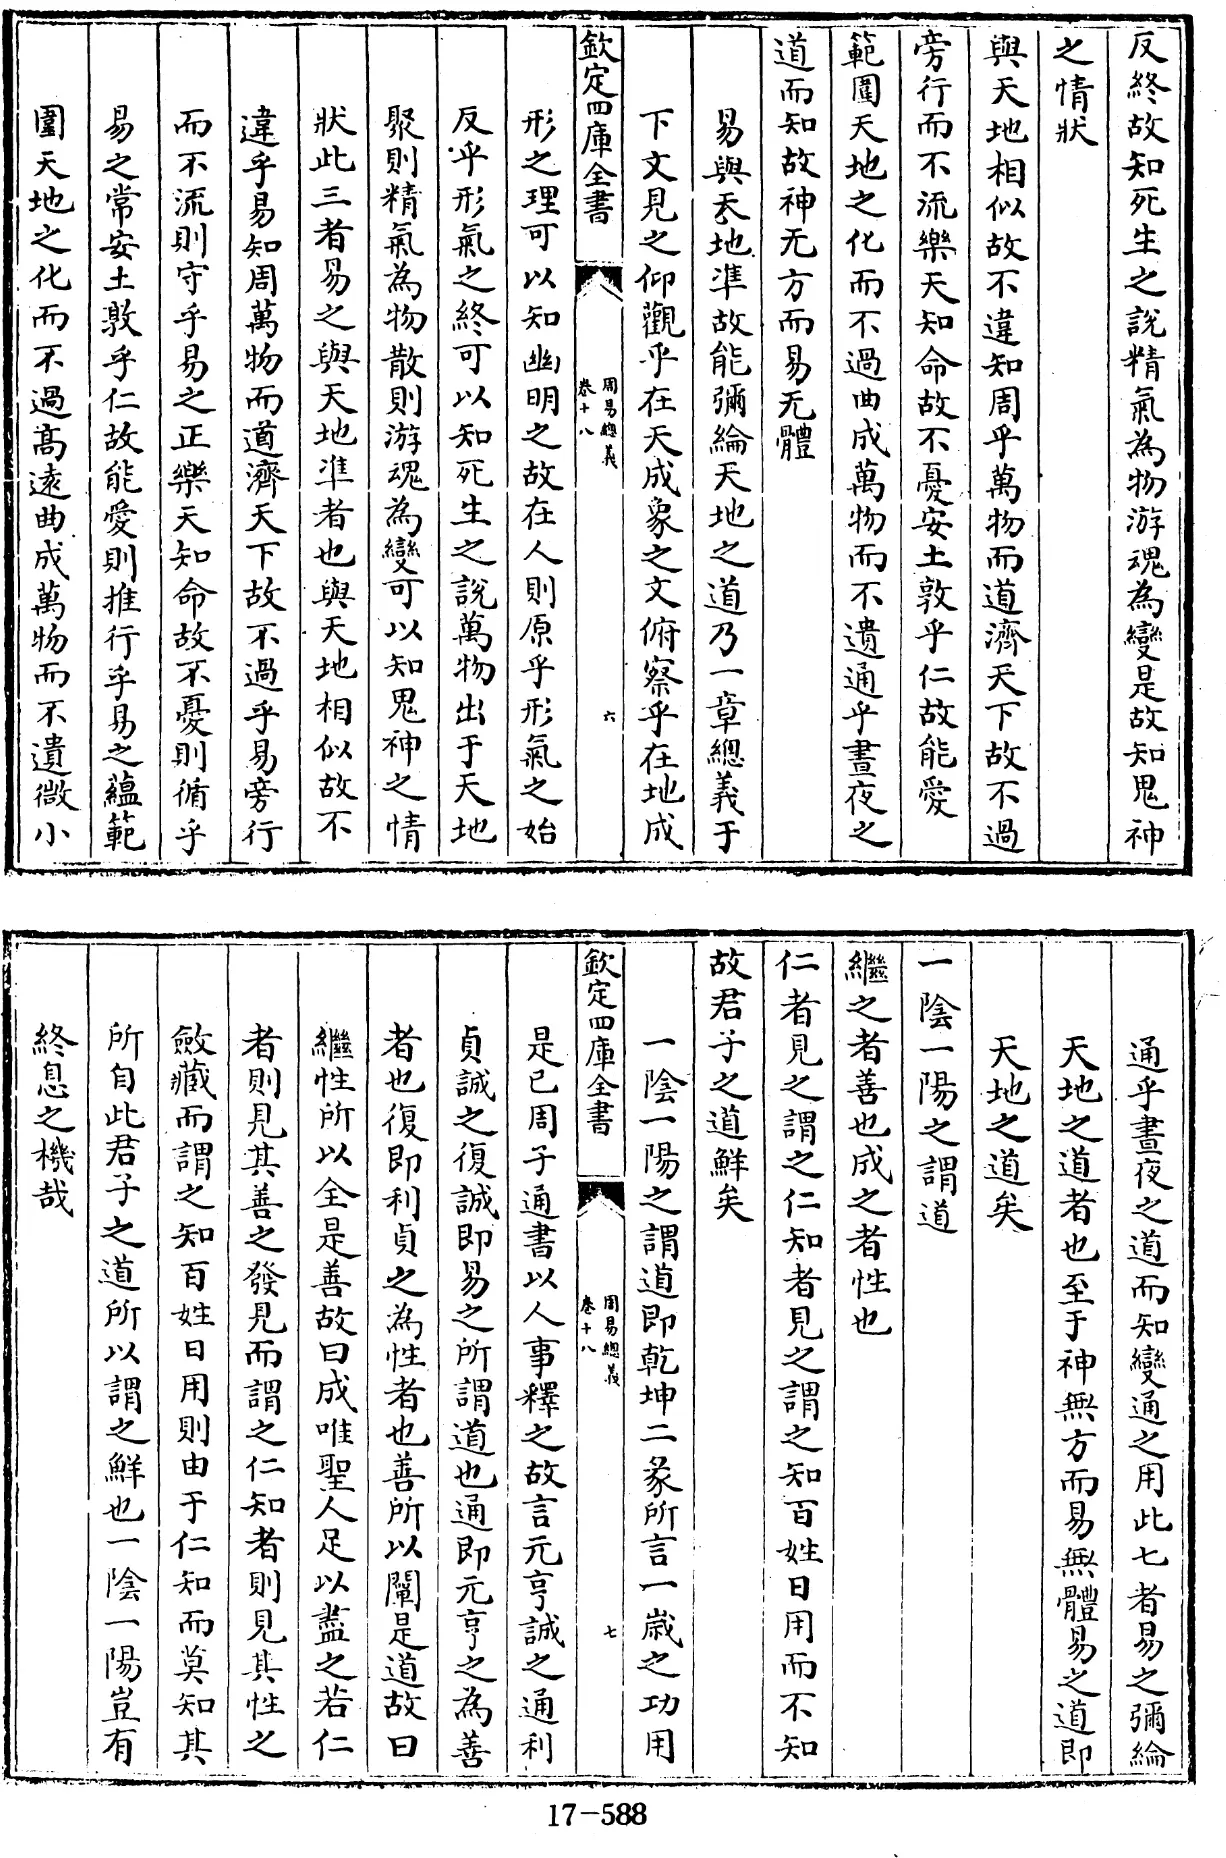 反終故知死生之説精氣為物游魂為變是故知鬼神
之情狀
與天地相似故不違知周乎萬物而道濟天下故不過
旁行而不流樂天知命故不憂安土敦乎仁故能愛
範圍天地之化而不過曲成萬物而不遺通乎晝夜之
道而知故神无方而易无體
易與天地準故能彌綸天地之道乃一章總義于
下文見之仰觀乎在天成象之文俯察乎在地成
欽定四庫全書
周易總義
卷十八
六
形之理可以知幽明之故在人則原乎形氣之始
反乎形氣之終可以知死生之説萬物出于天地
聚則精氣為物散則游魂為變可以知鬼神之情
狀此三者易之與天地準者也與天地相似故不
違乎易知周萬物而道濟天下故不過乎易旁行
而不流則守乎易之正樂天知命故不憂則循乎
易之常安土敦乎仁故能愛則推行乎易之蘊範
圍天地之化而不過髙遠曲成萬物而不遺微小
通乎晝夜之道而知變通之用此七者易之彌綸
天地之道者也至于神無方而易無體易之道即
天地之道矣
一陰一陽之謂道
繼之者善也成之者性也
仁者見之謂之仁知者見之謂之知百姓日用而不知
故君子之道鮮矣
一陰一陽之謂道即乾坤二彖所言一嵗之功用
欽定四庫全書
周易總義
卷十八
七
是已周子通書以人事釋之故言元亨誠之通利
貞誠之復誠即易之所謂道也通即元亨之為善
者也復即利貞之為性者也善所以闡是道故曰
繼性所以全是善故曰成唯聖人足以盡之若仁
者則見其善之發見而謂之仁知者則見其性之
斂藏而謂之知百姓日用則由于仁知而莫知其
所自此君子之道所以謂之鮮也一陰一陽豈有
終息之機哉
17-588